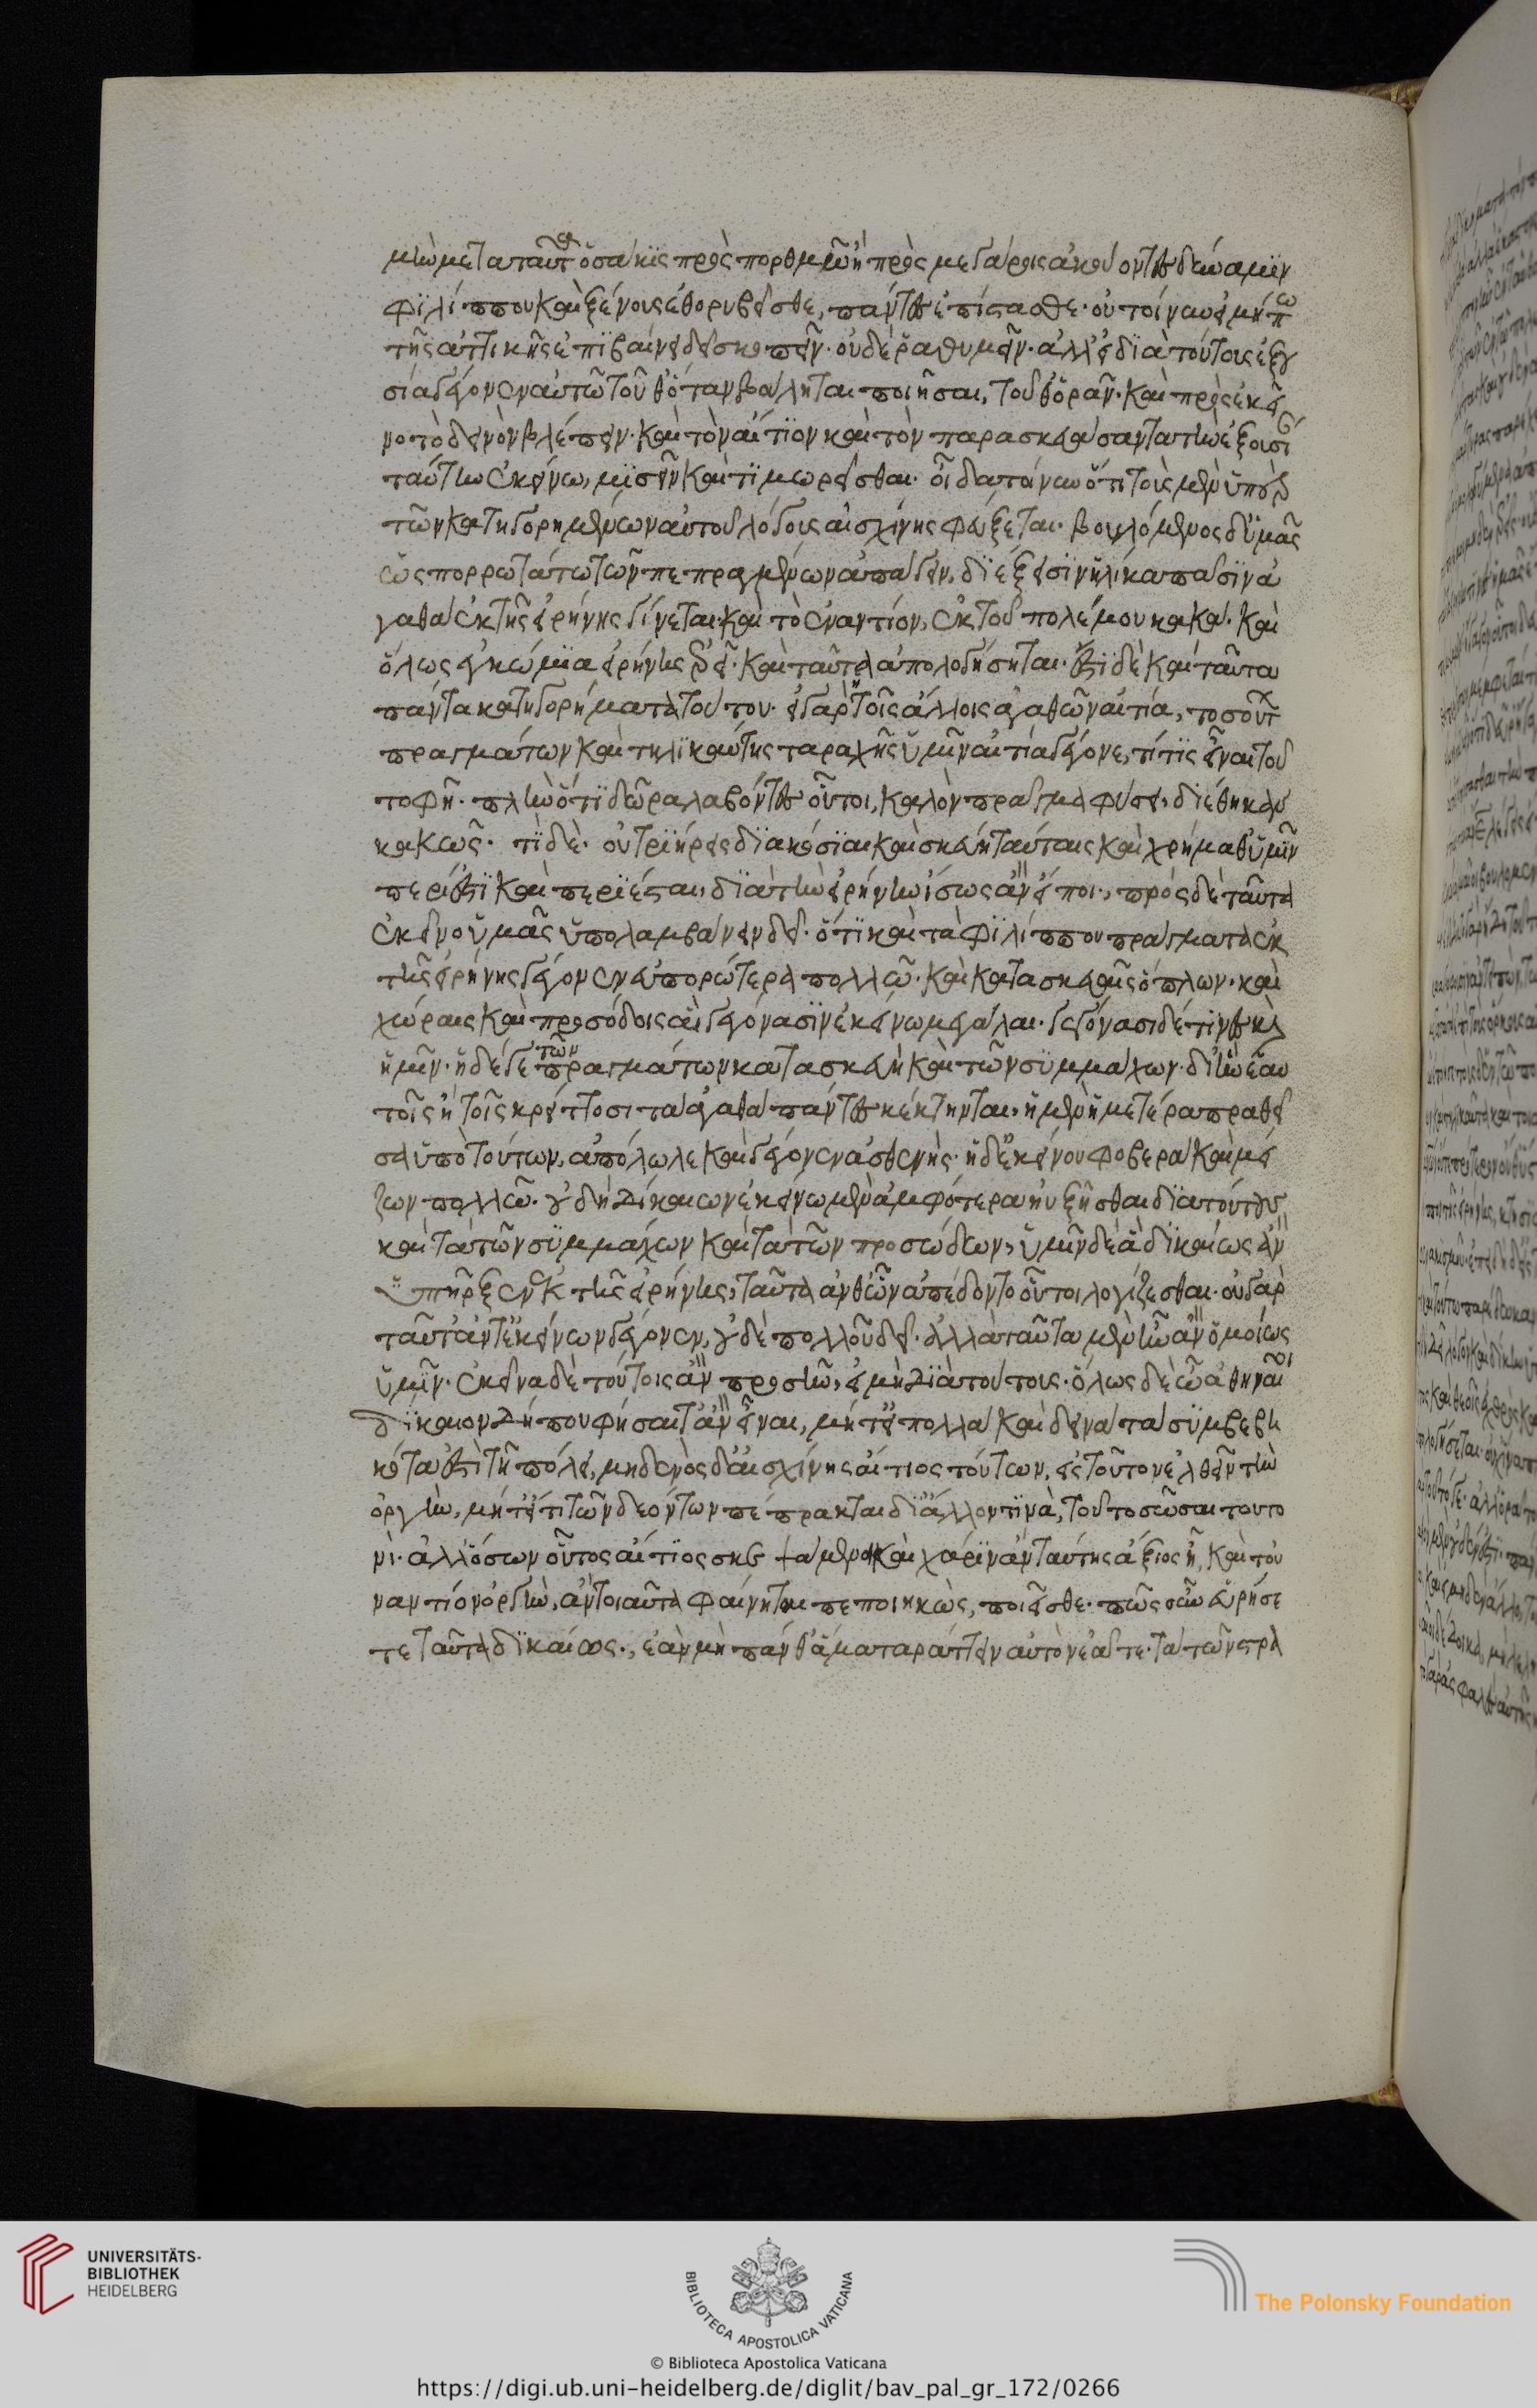 μὴν μετὰ ταῦθ' ὁσάκις πρὸς πορθμῶ ἢ πρὸς μεγάροις ἀκούοντες δύναμιν
φιλίππου καὶ ξένους ἐθορυβεῖσθε, πάντες ἐπίστασθε. οὐ τοίνυν εἰ μήπω
τῆς ἀττικῆς ἐπιβαίνει δεῖ σκοπεῖν. οὐδὲ ῥαθυμεῖν. ἀλλ' εἰ διὰ τούτους ἐξου
σία γέγονεν αὐτῶ τοῦθ' ὅταν βούληται ποιῆσαι, τοῦθ' ὁρᾶν. καὶ πρὸς ἐκεῖ
νο τὸ δεινὸν βλέπειν. καὶ τὸν αἴτιον καὶ τὸν παρασκευάσαντα τὴν ἐξουσί
ταύτην ἐκείνω, μισεῖν καὶ τιμωρεῖσθαι. οἶδα τοίνυν ὅτι τοὺς μὲν ὑπὲρ
τῶν κατηγορημένων αὐτοῦ λόγους αἰσχίνης φεύξεται. βουλόμενος δ' ὑμᾶς
ὡς πορρωτάτω τῶν πεπραγμένων ἀπάγειν, διέξεισιν ἡλίκα πᾶσιν ἀ
γαθὰ ἐκ τῆς εἰρήνης γίνεται. καὶ τὸ ἐναντίον, ἐκ τοῦ πολέμου κακά. καὶ
ὅλως ἐγκώμια εἰρήνης ἐρεῖ. καὶ ταῦτα ἀπολογήσηται. ἔστι δὲ καὶ ταῦτα
πάντα κατηγορήματα τούτου. εἰ γὰρ ἡ τοῖς ἄλλοις ἀγαθῶν αἰτία, τοσούτ
πραγμάτων καὶ τηλικαύτης ταραχῆς ὑμῖν αἰτία γέγονε, τί τις εἶναι τοῦ
το φῆ. πλὴν ὅτι δῶρα λαβόντες οὗτοι, καλὸν πρᾶγμα φύσει διέθηκαν
κακῶς. τί δὲ. οὐ τριήρεις διακόσιαι καὶ σκεύη ταύταις καὶ χρήμαθ' ὑμῖν
περίεστι καὶ περιέσται, διὰ τὴν εἰρήνην ἴσως ἂν εἴποι., πρὸς δὲ ταῦτα
ἐκεῖνο ὑμᾶς ὑπολαμβάνειν δεῖ. ὅτι καὶ τὰ φιλίππου πράγματα ἐκ
τῆς εἰρήνης γέγονεν εὐπορώτερα πολλῶ. καὶ κατασκευαῖς ὅπλων. καὶ
χώραις καὶ προσόδοις αἳ γεγόνασιν ἐκείνω μεγάλαι. γεγόνασι δέ τινες καὶ
ἡμῖν. ἡ δέ γε τῶν πραγμάτων κατασκευὴ καὶ τῶν συμμάχων. δι' ἣν ἑαυ
τοῖς ἢ τοῖς κρείττοσι τἀγαθὰ πάντες κέκτηνται, ἡ μὲν ἡμετέρα πραθεῖ
σα ὑπὸ τούτων, ἀπόλωλε καὶ γέγονεν ἀσθενής. ἡ δ' ἐκείνου φοβερὰ καὶ μεί
ζων πολλῶ. οὐ δὴ δίκαιον ἐκείνω μὲν ἀμφότερα ηὐξῆσθαι διὰ τούτους
καὶ τὰ τῶν συμμάχων καὶ τὰ τῶν προσόδων, ὑμῖν δὲ ἃ δικαίως ἂν
ὑπῆρξεν ἐκ τῆς εἰρήνης, ταῦτα ἀνθ' ὧν ἀπέδοντο οὗτοι λογίζεσθαι. οὐ γὰρ
ταῦτ' ἀντ' ἐκείνων γέγονεν, οὐδὲ πολλοῦ δεῖ. ἀλλὰ ταῦτα μὲν ἦν ἂν ὁμοίως
ὑμῖν. ἐκεῖνα δὲ τούτοις ἂν προσῆν, εἰ μὴ διὰ τούτους. ὅλως δὲ ὦ ἀθηναῖοι
δίκαιον δήπου φήσαιτ' ἂν εἶναι, μήτ' εἰ πολλὰ καὶ δεινὰ τὰ συμβεβη
κότα ἐστὶ τῆ πόλει, μηδενὸς δ' αἰσχίνης αἴτιος τούτων, εἰς τοῦτον ἐλθεῖν τὴν
ὀργὴν, μήτ' εἴ τι τῶν δεόντων πέπρακται δι' ἄλλον τινὰ, τοῦτο σῶσαι τουτο
νί. ἀλλ' ὅσων οὗτος αἴτιος σκεψάμενοι καὶ χάριν ἂν ταύτης ἄξιος ᾖ, καὶ τοὐ
ναντίον ὀργὴν, ἂν τοιαῦτα φαίνηται πεποιηκὼς, ποιεῖσθε. πῶς οὖν εὑρήσε
τε ταῦτα δικαίως., ἐὰν μὴ πάνθ' ἅμα ταράττειν αὐτὸν ἐᾶτε. τὰ τῶν στρα
UNIVERSITÄTS-
BIBLIOTHEK
HEIDELBERG
BIBLIOTECA APOSTOLICA VATICANA
The Polonsky Foundation
© Biblioteca Apostolica Vaticana
https://digi.ub.uni-heidelberg.de/diglit/bav_pal_gr_172/0266